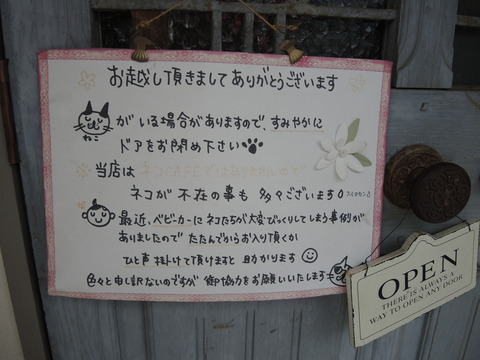 お越し頂きましてありがとうございます
ねこ
がいる場合がありますので、すみやかに
ドアをお閉め下さい
当店は ネコCAFEではありませんので
ネコが 不在の事も 多々ございます スイマセン
最近、ベビーカーにネコたちが大変びっくりしてしまう事例が
ありましたので たたんでからお入り頂くか
ひと声掛けて頂けますと 助かります
色々と申し訳ないのですが 御協力をお願いいたします
OPEN
THERE IS ALWAYS A
WAY TO OPEN ANY DOOR